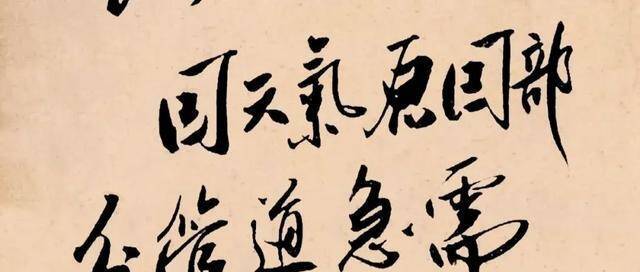 因天氣原因部
分管道急需